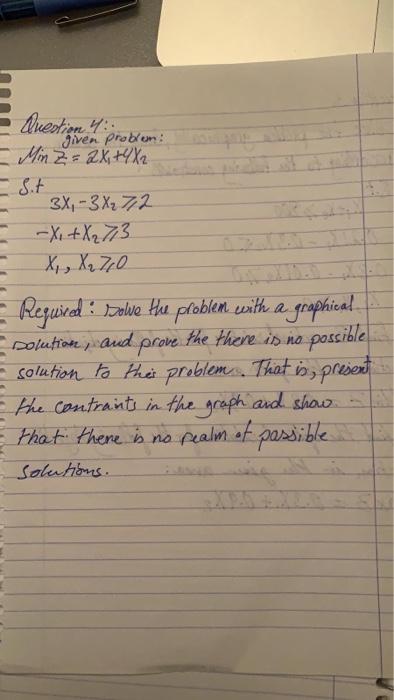 Question 4:.
given problem:
Min Z = 2X₁+4X₂
S.t
3X₁-3X₂ ≥ 2
-X₁+X₂ ≥ 3
X₁, X₂ ≥ 0
Required: Solve the problem with a graphical
solution, and prove the there is no possible
solution to this problem. That is, present
the contraints in the graph and show
that there is no realm of possible
solutions.